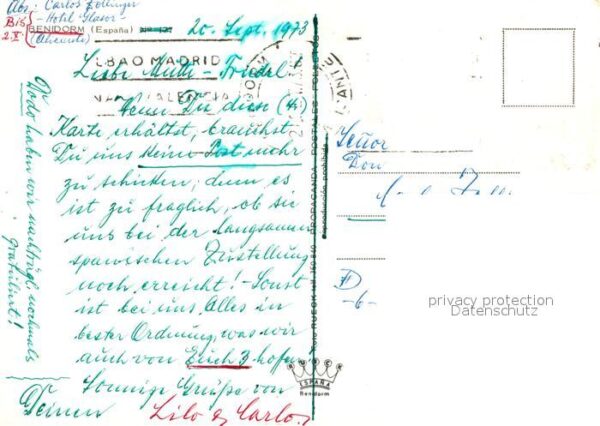 Abs: Carlos
- Hotel Glasor -
Bis 2.X.
BENIDORM (España)
(Alicante)
20. Sept. 1973
BILBAO MADRID
VALENCIA
Liebe Mutti - Friedel!
Wenn Du diese (4.)
Karte erhältst, brauchst
Du uns keine Post mehr
zu schicken; denn es
ist zu fraglich, ob sie
uns bei der langsamen
spanischen Zustellung
noch erreicht! - Sonst
ist bei uns Alles in
bester Ordnung, was wir
auch von Euch 3 hoffen
Sonnige Grüße von
Deinen Lilo & Carlo.
Dodo haben wir nachträgl. nochmals
gratuliert!
PROPAGANDA POSTALES
RUECK
ALICANTE
Señor
Don
D
-6-
privacy protection
Datenschutz
ESPAÑA
Benidorm